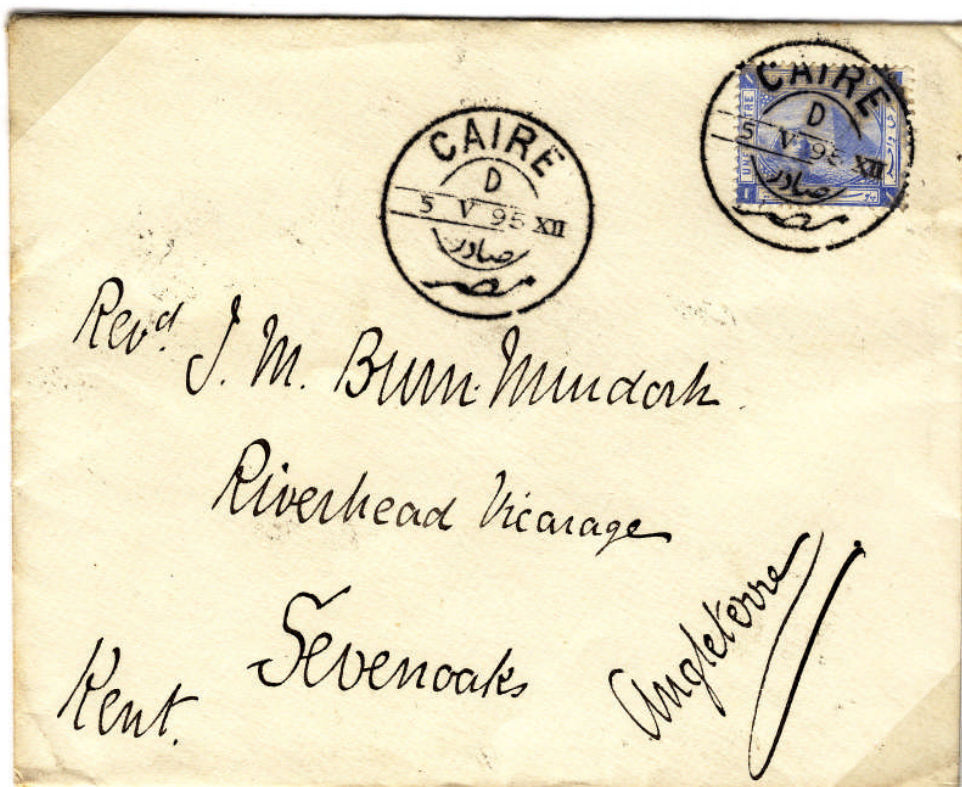 CAIRE
D
5 V 95 XII
صادر
مصر
CAIRE
D
5 V 95 XII
صادر
مصر
UNE
1
Revd. J. M. Burn-Murdoch
Riverhead Vicarage
Sevenoaks
Kent.
Angleterre